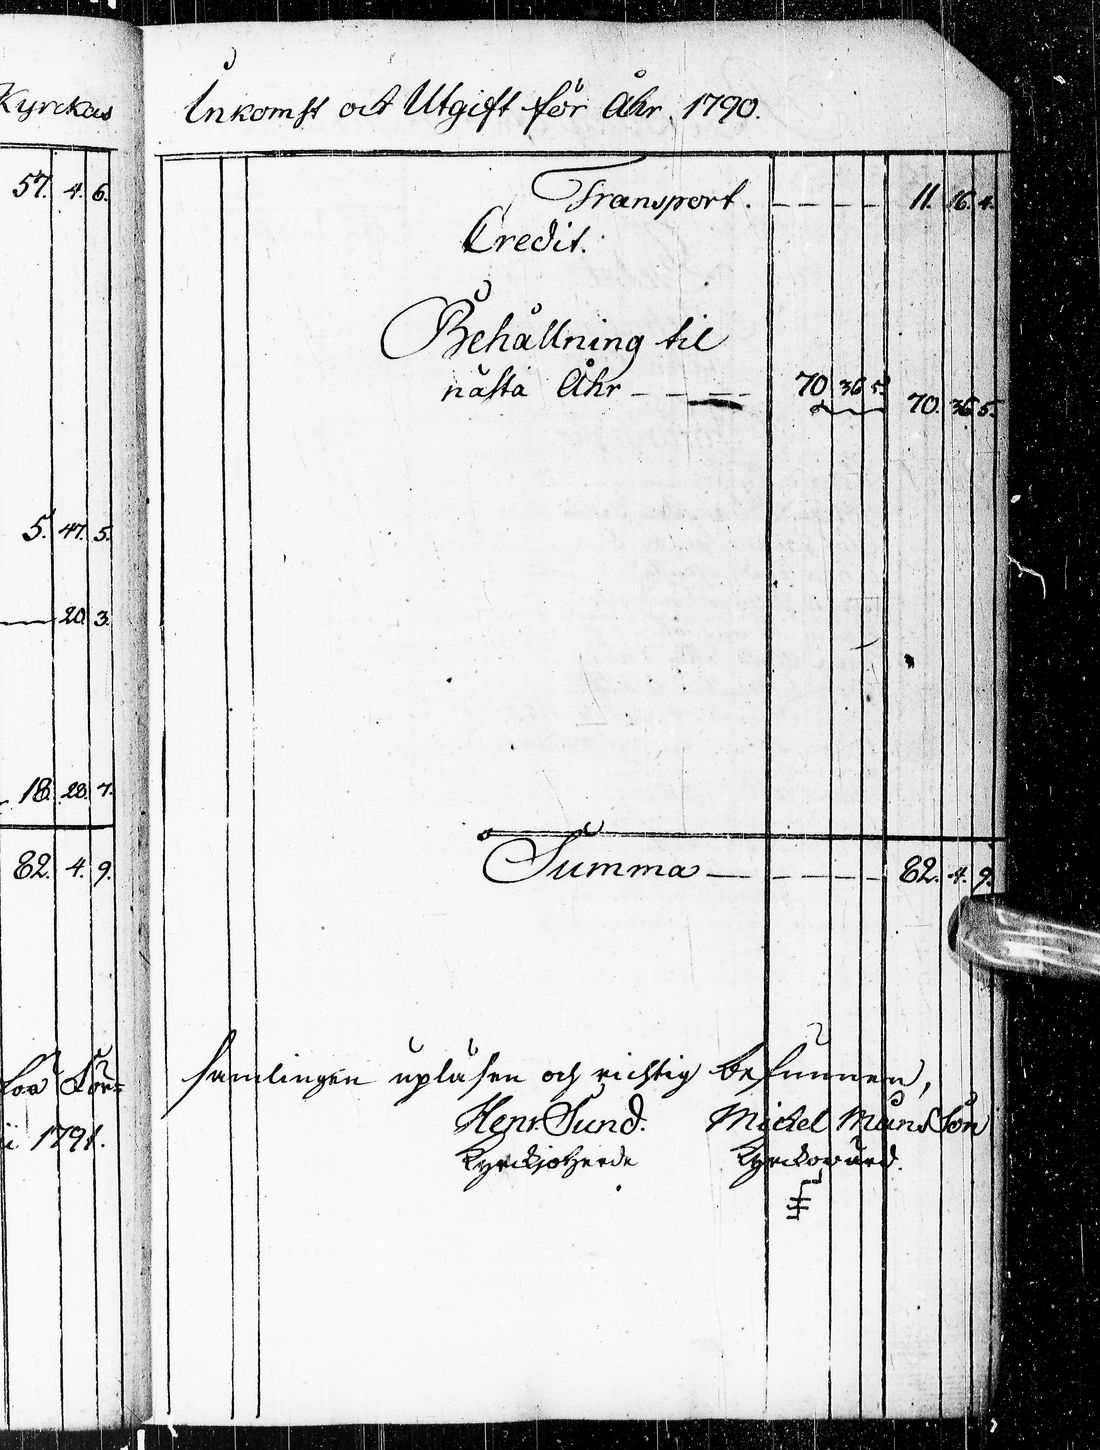 Kyrckas
57. 4. 6.
5. 47. 5.
20. 3.
18. 28. 7.
82. 4. 9.
1791.
Inkomst och Utgift för Åhr 1790.
Transport. 11. 16. 4.
Credit.
Behållning til
nästa Åhr 70 36 5. 70. 36. 5.
Summa 82. 4. 9.
samlingen upläsen och richtig befunnen,
Henr. Sund. Mickel Månsson
Kyrckioherde Kyrckovärd.